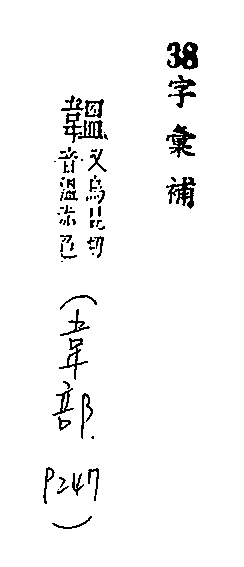 38字彙補
韞
又烏昆切
音溫赤色
(韋部.
P247)